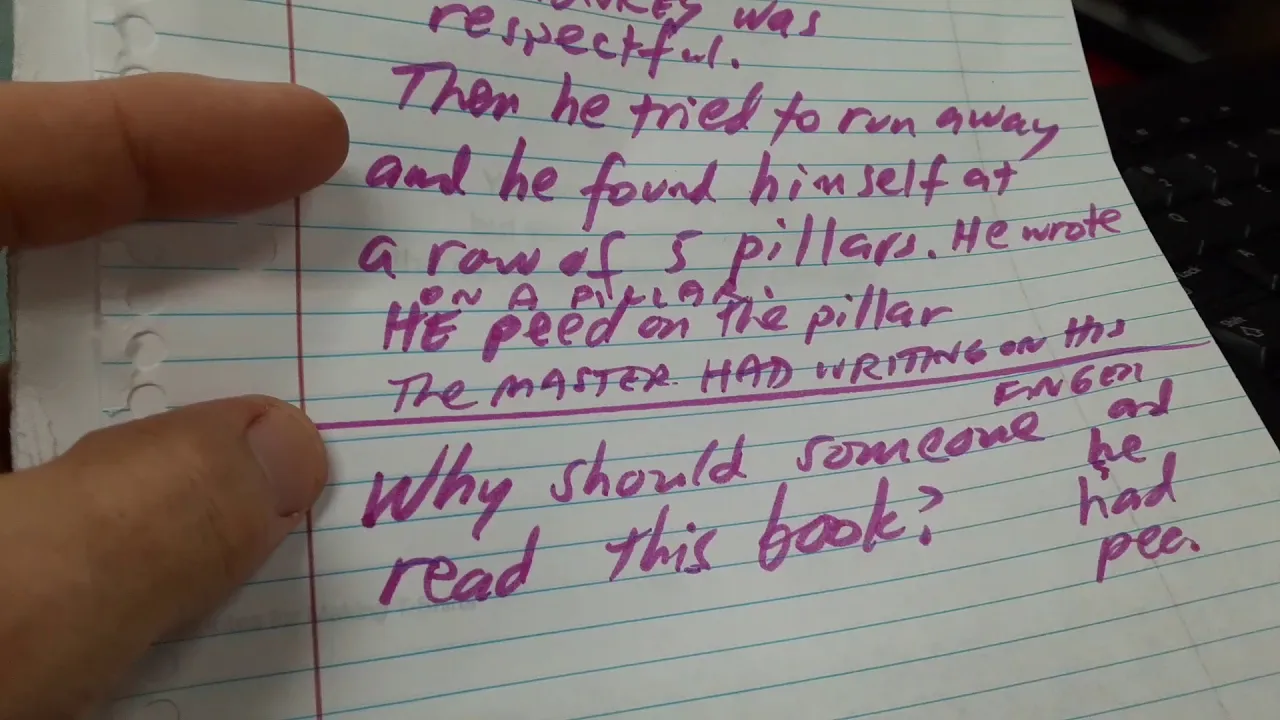 was
respectful.
Then he tried to run away
and he found himself at
a row of 5 pillars. He wrote
ON A PILLAR.
HE peed on the pillar
The MASTER HAD WRITING ON His
FINGER and
he
had
pee.
Why should someone
read this book?